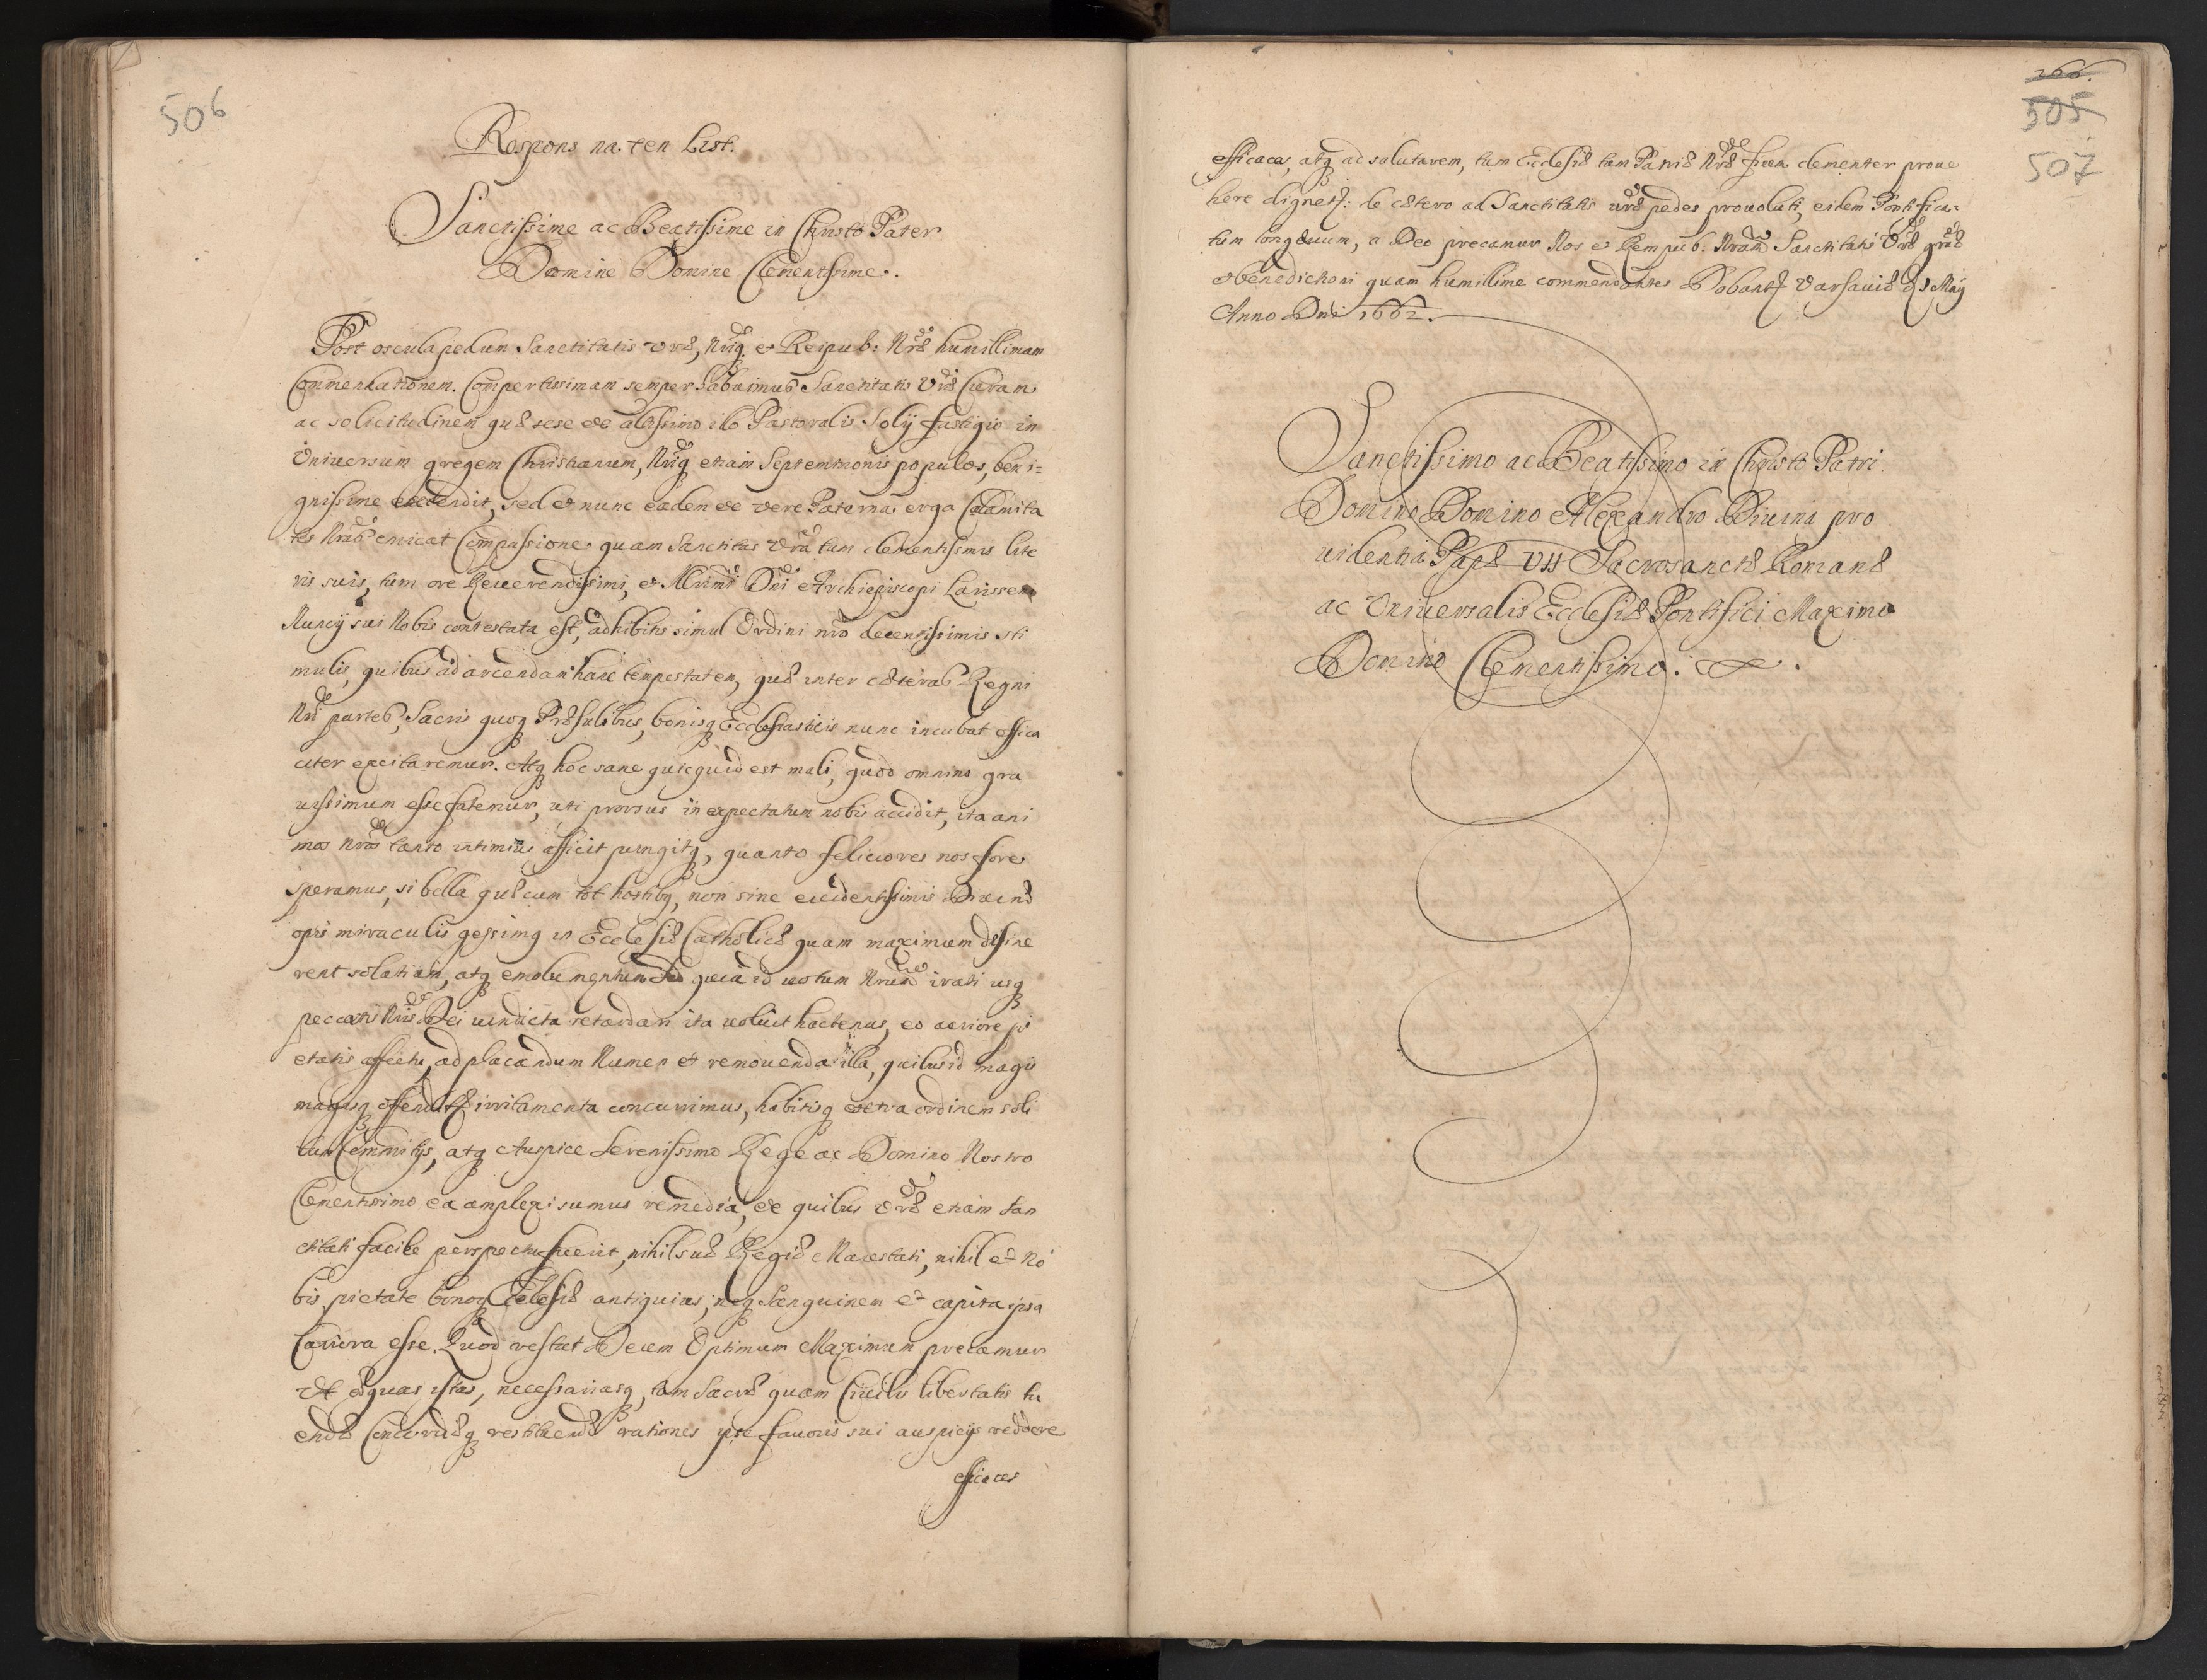 506
Respons na ten List.
Sanctissime ac Beatissime in Christo Pater
Domine Domine Clementissime.
Post oscula pedum Sanctitatis Vræ, Nriq. et Reipub: Nræ humillimam
Commendationem. Compertissimam semper habuimus Sanctitatis Vræ Curam
ac solicitudinem quæ sese ex altissimo illo Pastoralis Solij fastigio in
Vniuersum gregem Christianum, Nriq etiam Septemtrionis populos, beni-
gnissime extendit, sed et nunc eadem ex vere Paterna erga Calamita
tes Nras emicat Compassione quam Sanctitas Vra tum clementissimis lite
ris suis, tum ore Reuerendissimi, et Illrimi Dni Archiepiscopi Larissen
Nuncij sui Nobis contestata est, adhibitis simul Ordini nro decentissimis sti
mulis, quibus ad arcendam hanc tempestatem, quæ inter cæteras Regni
Nri partes, Sacris quoq Præsulibus, bonisq Ecclesiasticis nunc incubat effica
citer excitaremur. Atq hoc sane quicquid est mali, quod omnino gra
uissimum esse fatemur, uti prorsus inexpectatum nobis accidit, ita ani
mos Nros tanto intimius afficit pungitq, quanto feliciores nos fore
speramus, si bella quæ cum tot hostibq, non sine euidentissimis Diuinæ
opis miraculis gessimq in Ecclesiæ Catholicæ quam maximum desine
rent solatium, atq emolumentum Sed quia id uotum Nrum irati usq
peccatis Nris Dei uindicta retardari ita uoluit hactenus, eo acriore pi
etatis affectu, ad placandum Numen et remouenda illa, quibus id magis
magisq offenditz irritamenta concurrimus, habitisq extra ordinem soli
tum Commitijs, atq Auspice Serenissimo Rege ac Domino Nostro
Clementissimo ea amplexi sumus remedia, ex quibus Vræ etiam San
ctitati facile perspectu fuerit, nihil suæ Regiæ Maiestati, nihil et No
bis pietate bonoq Ecclesiæ antiquius, neq Sanguinem et capita ipsa
Cariora esse. Quod restat Deum Optimum Maximum precamur
Vt æquas istas, necessariasq, tam Sacræ quam Ciuilis libertatis tu
endæ Concordiæq restituendæ rationes ipse fauoris sui auspicijs reddere
efficaces
266.
505
507
efficaces, atq ad salutarem, tum Ecclesiæ tum Patriæ Nræ finem clementer proue
here dignetz: de cætero ad Sanctitatis uræ pedes prouoluti, eidem Pontifica-
tum longæuum, a Deo precamur Nos et Rempub: Nram Sanctitatis Vræ græ
et benedictioni quam humillime commendantes Dabantz Varsauiæ d 1 Maij
Anno Dni 1662.
Sanctissimo ac Beatissimo in Christo Patri
Domino Domino Alexandro Diuina pro
uidentia Papæ VII Sacrosanctæ Romanæ
ac Vniuersalis Ecclesiæ Pontifici Maximo
Domino Clementissimo.